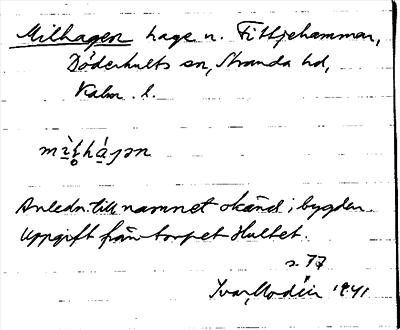 Milhagen hage n. Fittjehammar,
Döderhults sn, Stranda hd,
Kalm. l.
mìlháɡən
Anledn. till namnet okänd i bygden.
Uppgift från torpet Hultet.
s. 77
Ivar Modéer 1941